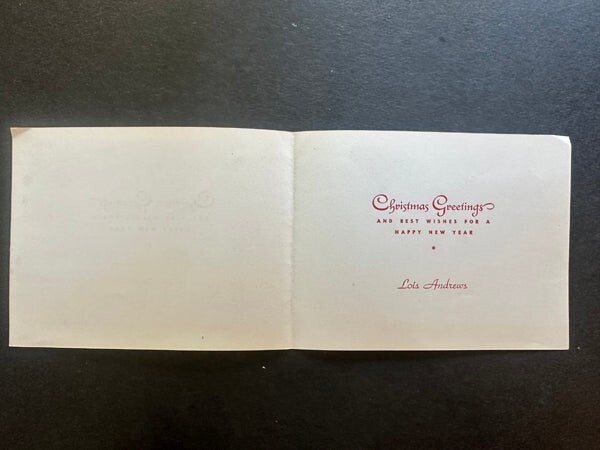 Christmas Greetings
AND BEST WISHES FOR A
HAPPY NEW YEAR
Lois Andrews